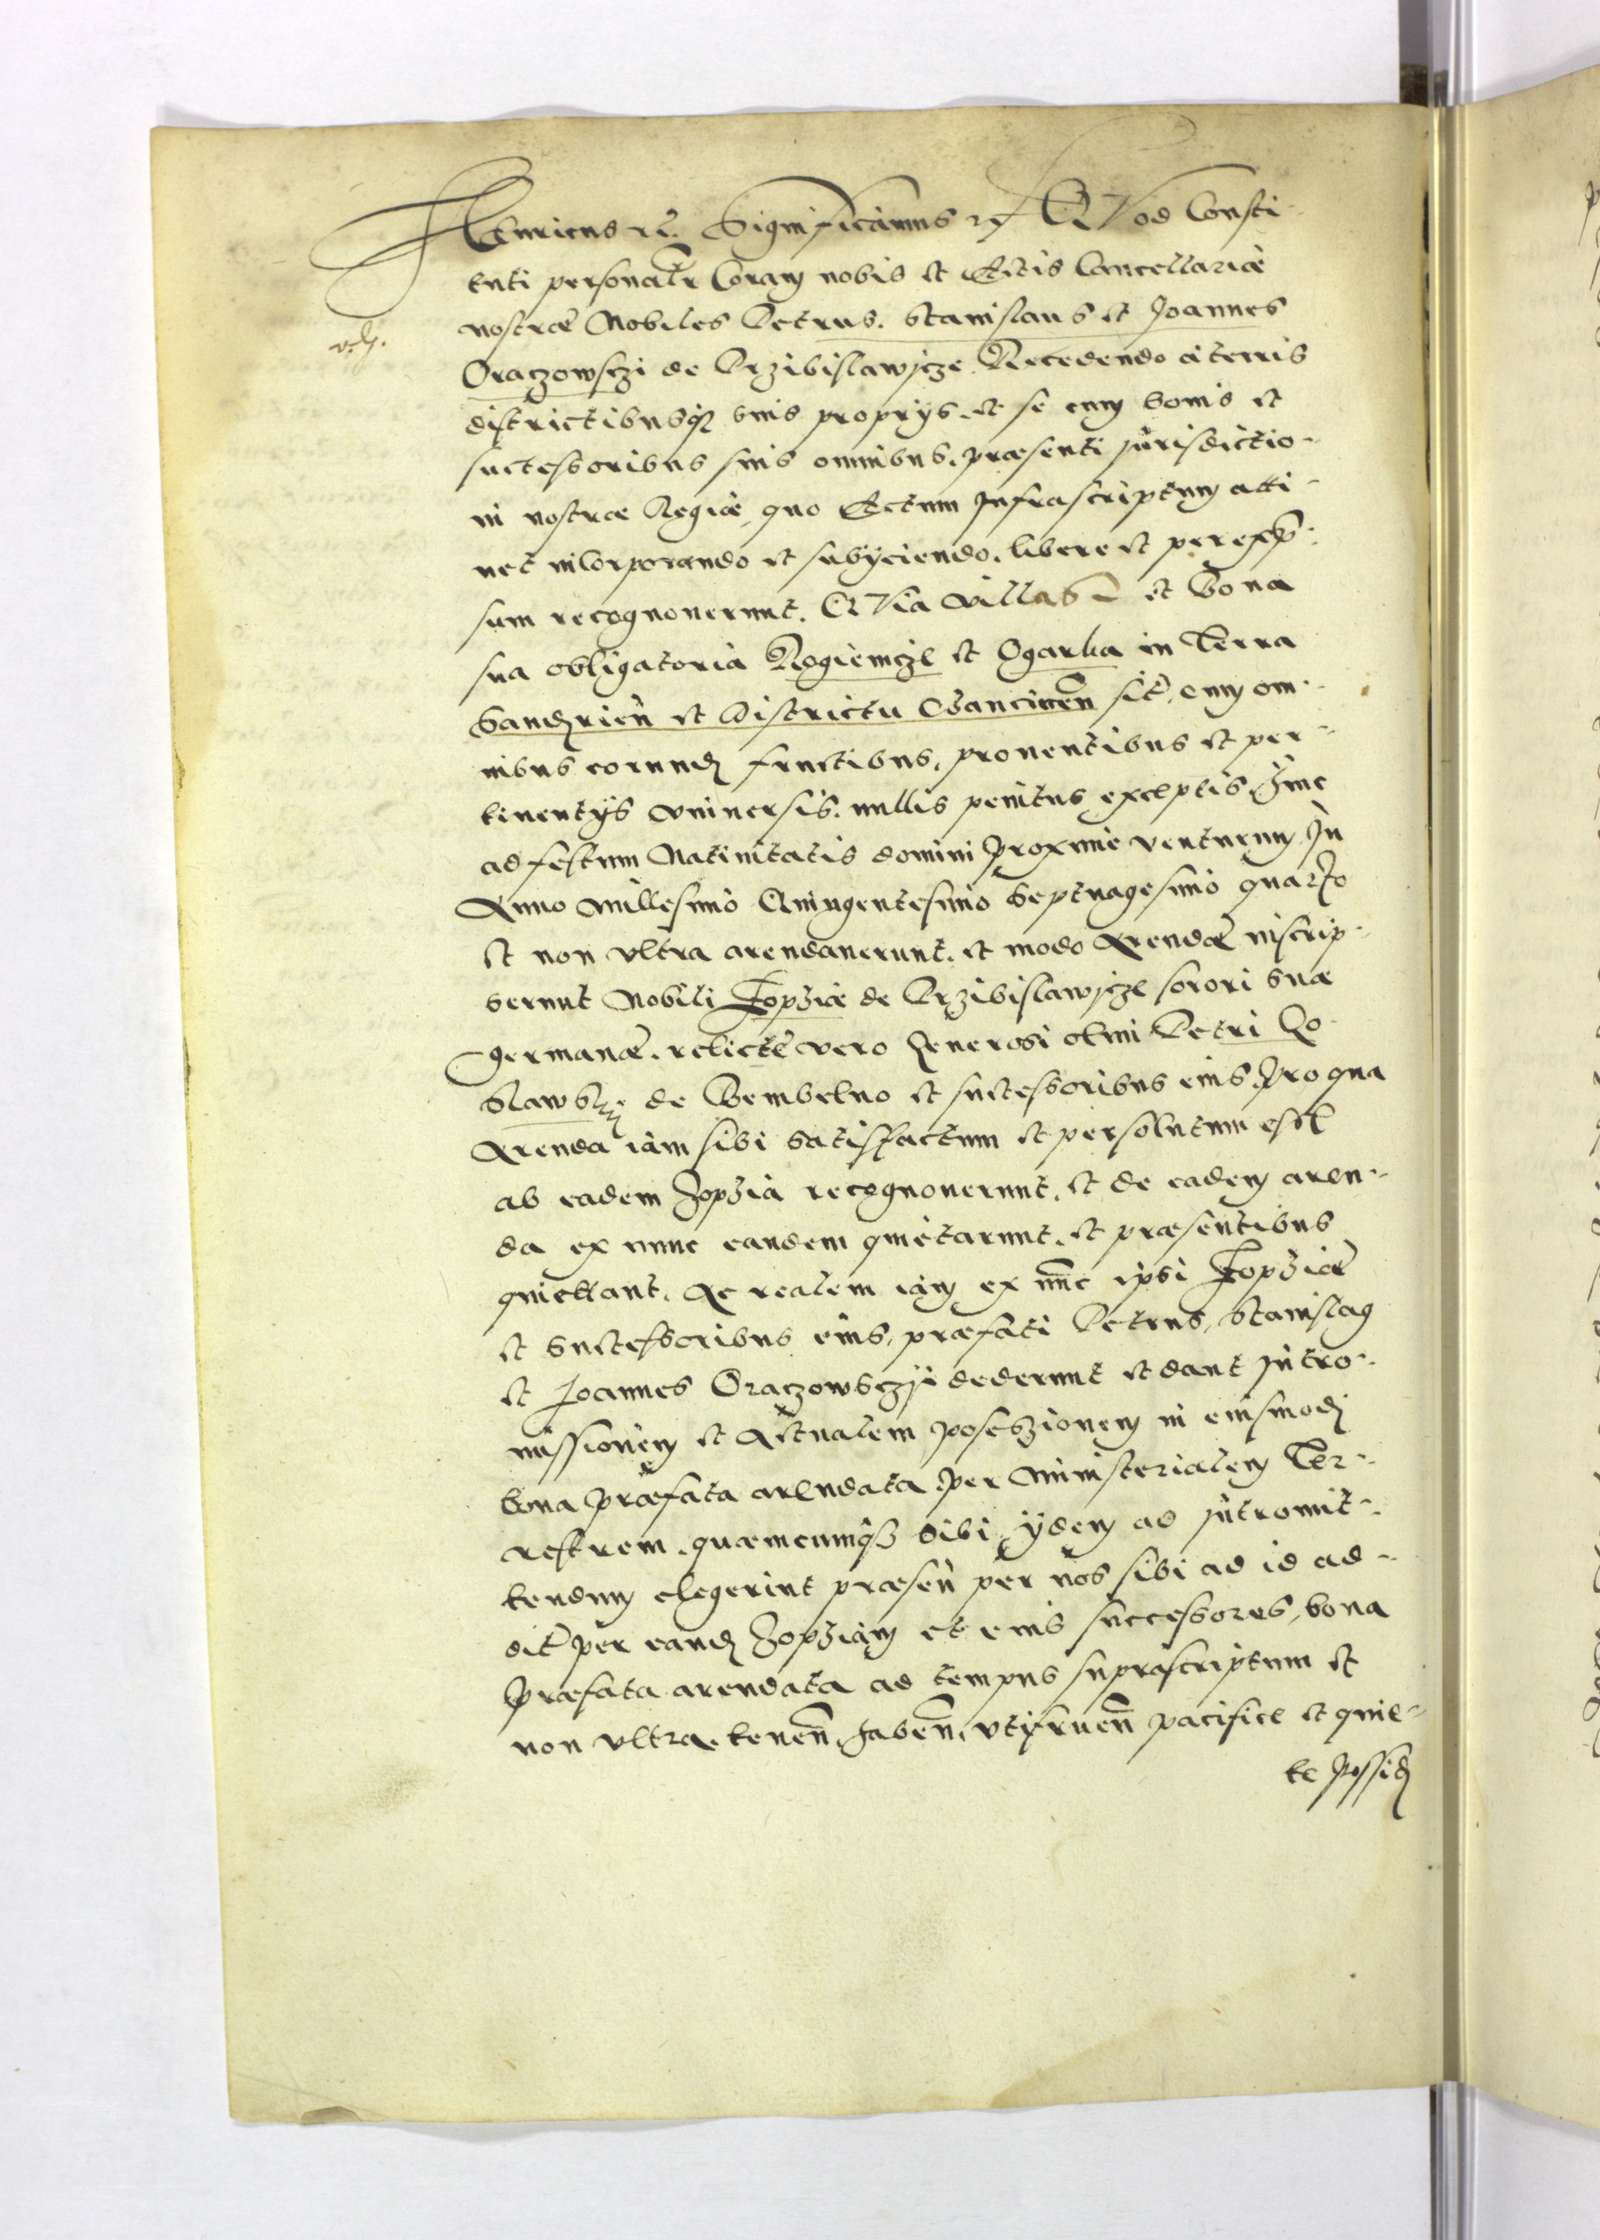 Henricus etc. Significamus etc. QVod Consti-
tuti personalr Coram nobis et Actis Cancellariæ
nostræ Nobiles Petrus. Stanislaus et Joannes
Oraczowsczi de Przibislawycze Recedendo a terris
districtibusq3 suis proprys. et se cum bonis et
successoribus suis omnibus. præsenti Jurisdictio-
ni nostræ Regiæ, quo Actum Infrascriptum atti-
net inCorporando et subyciendo. libere et per expr-
sum recognouerunt. QVia Villas et bona
sua obligatoria Rogiemicze et Ogarka in Terra
Sandzirien et Districtu Chancinen sit, cum om-
nibus eorund fructibus, prouentibus et per-
tinentys vniuersis. nullis penitus exceptis. Hinc
ad festum Natiuitatis domini proxime venturum In
Anno Millesimo Quingentesimo Septuagesimo quarto
et non vltra arendauerunt. et modo Arendæ inscrip-
serunt Nobili Zophiæ de Przibislawycze sorori suæ
germanæ. relictæ vero Generosi olim Petri Ko-
slaws de Bembelno et successoribus eius. Pro qua
Arenda iam sibi satisfactum et persolutum esse
ab eadem Zophia recognouerunt. et de eadem aren-
da ex nunc eandem quietarunt. et præsentibus
quiettant. Ac realem iam ex nunc ipsi Zophiæ
et Successoribus eius, præfati Petrus, Stanislaus
et Joannes Oraczowsczy dederunt et dant Intro-
missionem et Actualem possessionem in eiusmodi
bona præfata arendata per Ministerialem Ter-
restrem. quemcumq3 sibi ydem ad Intromit-
tendum elegerint præsen per nos sibi ad id ad-
dit per eand Zophiam et eius successores, bona
præfata arendata ad tempus suprascriptum et
non vltra. tenen. haben. vtifruen pacifice et quie-
te Possid